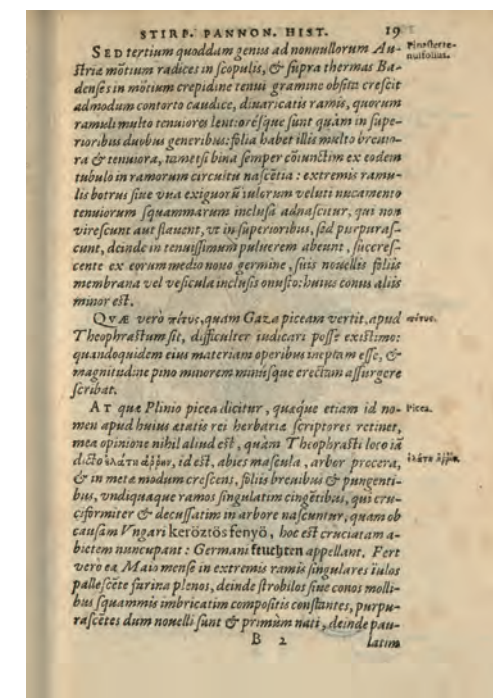 STIRP. PANNON. HIST. 19
SED tertium quoddam genus ad nonnullorum Au-
Pinaster te-
nuifolius.
ſtriæ mōtium radices in ſcopulis, & ſupra thermas Ba-
denſes in mōtium crepidine tenui gramine obſita creſcit
admodum contorto caudice, diuaricatis ramis, quorum
ramuli multo tenuiores lent:oréſque ſunt quàm in ſupe-
rioribus duobus generibus: folia habet illis multo breuio-
ra & tenuiora, tametſi bina ſemper cōiunctim ex eodem
tubulo in ramorum circuitu naſcētia: extremis ramu-
lis botrus ſiue vua exiguorū iulorum veluti nucamento
tenuiorum ſquammarum incluſa adnaſcitur, qui non
vireſcunt aut flauent, vt in ſuperioribus, ſed purpuraſ-
cunt, deinde in tenuiſſimum puluerem abeunt, ſuccreſ-
cente ex eorum medio nouo germine, ſuis nouellis foliis
membrana vel veſicula incluſis onuſto: huius conus aliis
minor eſt.
QVÆ verò πίτυς, quam Gaza piceam vertit, apud
πίτυς.
Theophraſtum ſit, difficulter iudicari poſſe exiſtimo:
quandoquidem eius materiam operibus ineptam eſſe, &
magnitudine pino minorem minúſque erectam aſſurgere
ſcribat.
AT quæ Plinio picea dicitur, quæque etiam id no-
Picea.
men apud huius ætatis rei herbariæ ſcriptores retinet,
mea opinione nihil aliud eſt, quàm Theophraſti loco iā
dicto ἐλάτη ἄῤῥην, id eſt, abies maſcula, arbor procera,
ἐλάτη ἄῤῥην.
& in metæ modum creſcens, foliis breuibus & pungenti-
bus, vndiquaque ramos ſingulatim cingētibus, qui cru-
ciformiter & decuſſatim in arbore naſcuntur, quam ob
cauſam Vngari keröztös fenyö, hoc eſt cruciatam a-
bietem nuncupant: Germani feuchten appellant. Fert
verò ea Maio menſe in extremis ramis ſingulares iulos
palleſcēte farina plenos, deinde ſtrobilos ſiue conos molli-
bus ſquammis imbricatim compoſitis conſtantes, purpu-
raſcētes dum nouelli ſunt & primùm nati, deinde pau-
B 2 latim